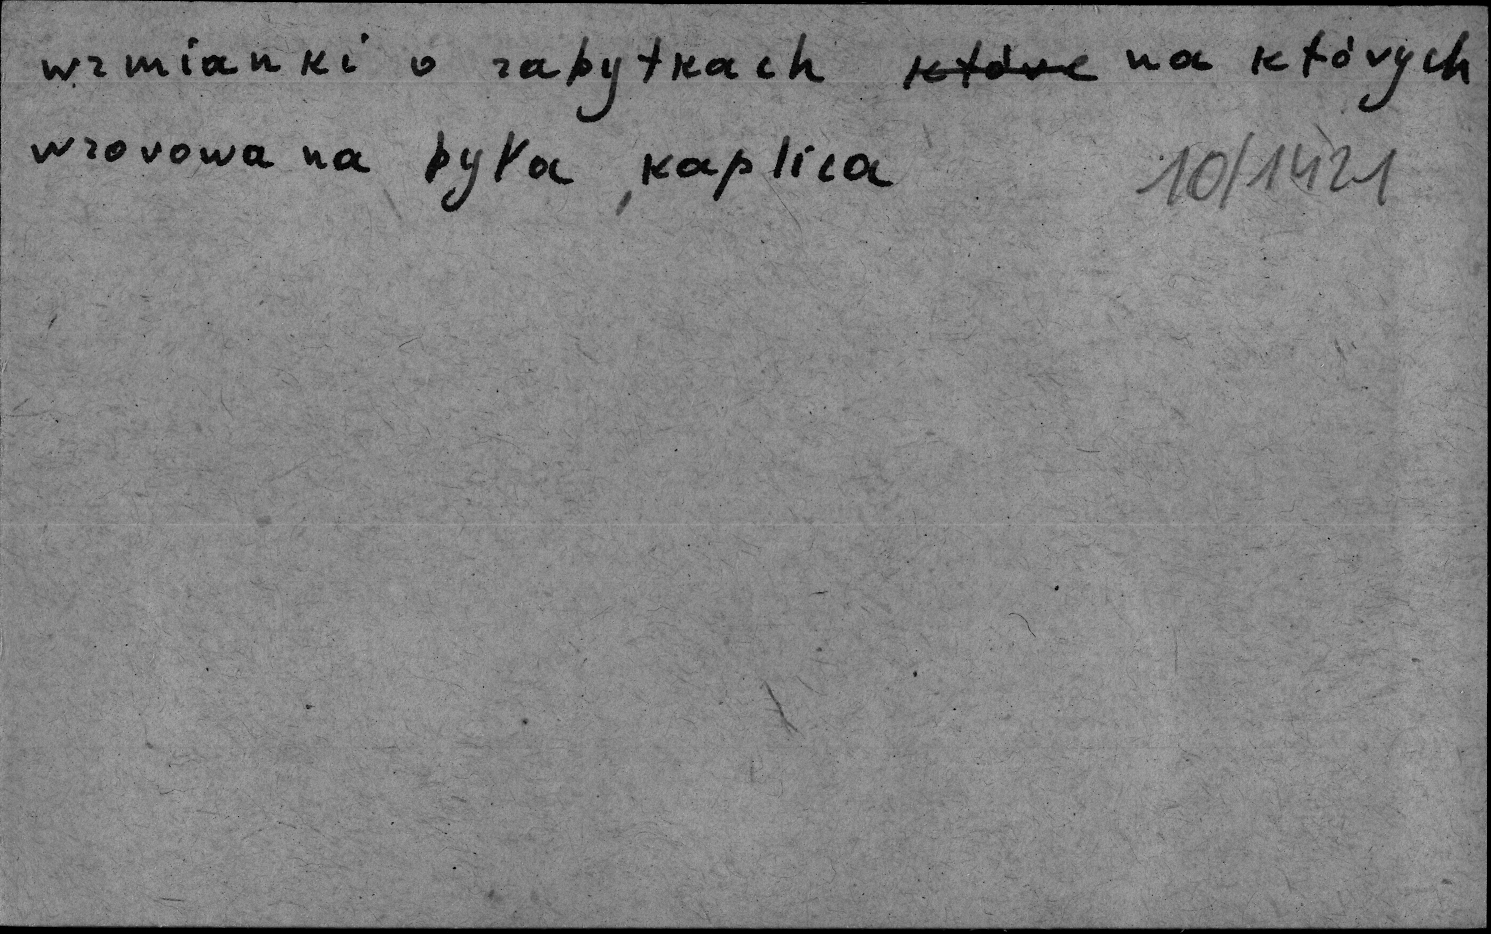 wzmianki o zabytkach ~~które~~ na których
wzorowana była kaplica 10/1421